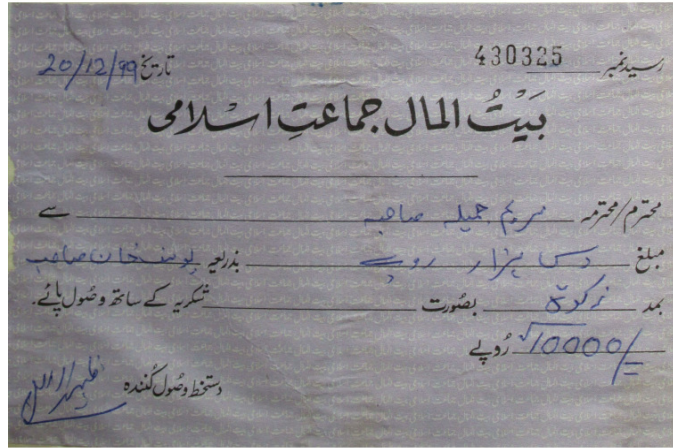 رسید نمبر 430325 تاریخ 20/12/99
بَیْتُ المال جماعتِ اسلامی
محترم/محترمہ مریم جمیلہ صاحبہ سے
مبلغ دس ہزار روپے بذریعہ یوسف خان صاحب
بمد زکوٰۃ بصُورت شکریہ کے ساتھ وصُول پائے۔
10000/= رُوپے
دستخط وصُول کُنندہ